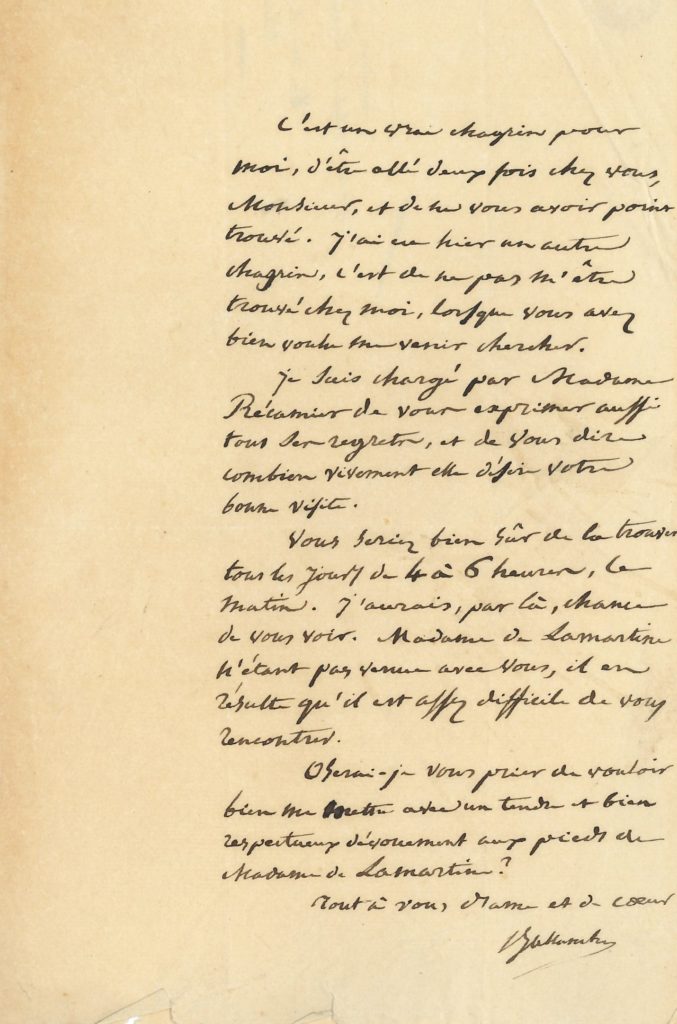 C'est un vrai chagrin pour
moi, d'être allé deux fois chez vous,
Monsieur, et de ne vous avoir point
trouvé. J'ai eu hier un autre
chagrin, c'est de ne pas m'être
trouvé chez moi, lorsque vous avez
bien voulu me venir chercher.
Je suis chargé par Madame
Récamier de vous exprimer aussi
tous ses regrets, et de vous dire
combien vivement elle désire votre
bonne visite.
Vous seriez bien sûr de la trouver
tous les jours de 4 à 6 heures, le
matin. J'aurais, par là, chance
de vous voir. Madame de Lamartine
n'étant pas venue avec vous, il en
résulte qu'il est assez difficile de vous
rencontrer.
Oserai-je vous prier de vouloir
bien me mettre avec un tendre et bien
respectueux dévouement aux pieds de
Madame de Lamartine?
Tout à vous d'ame et de cœur